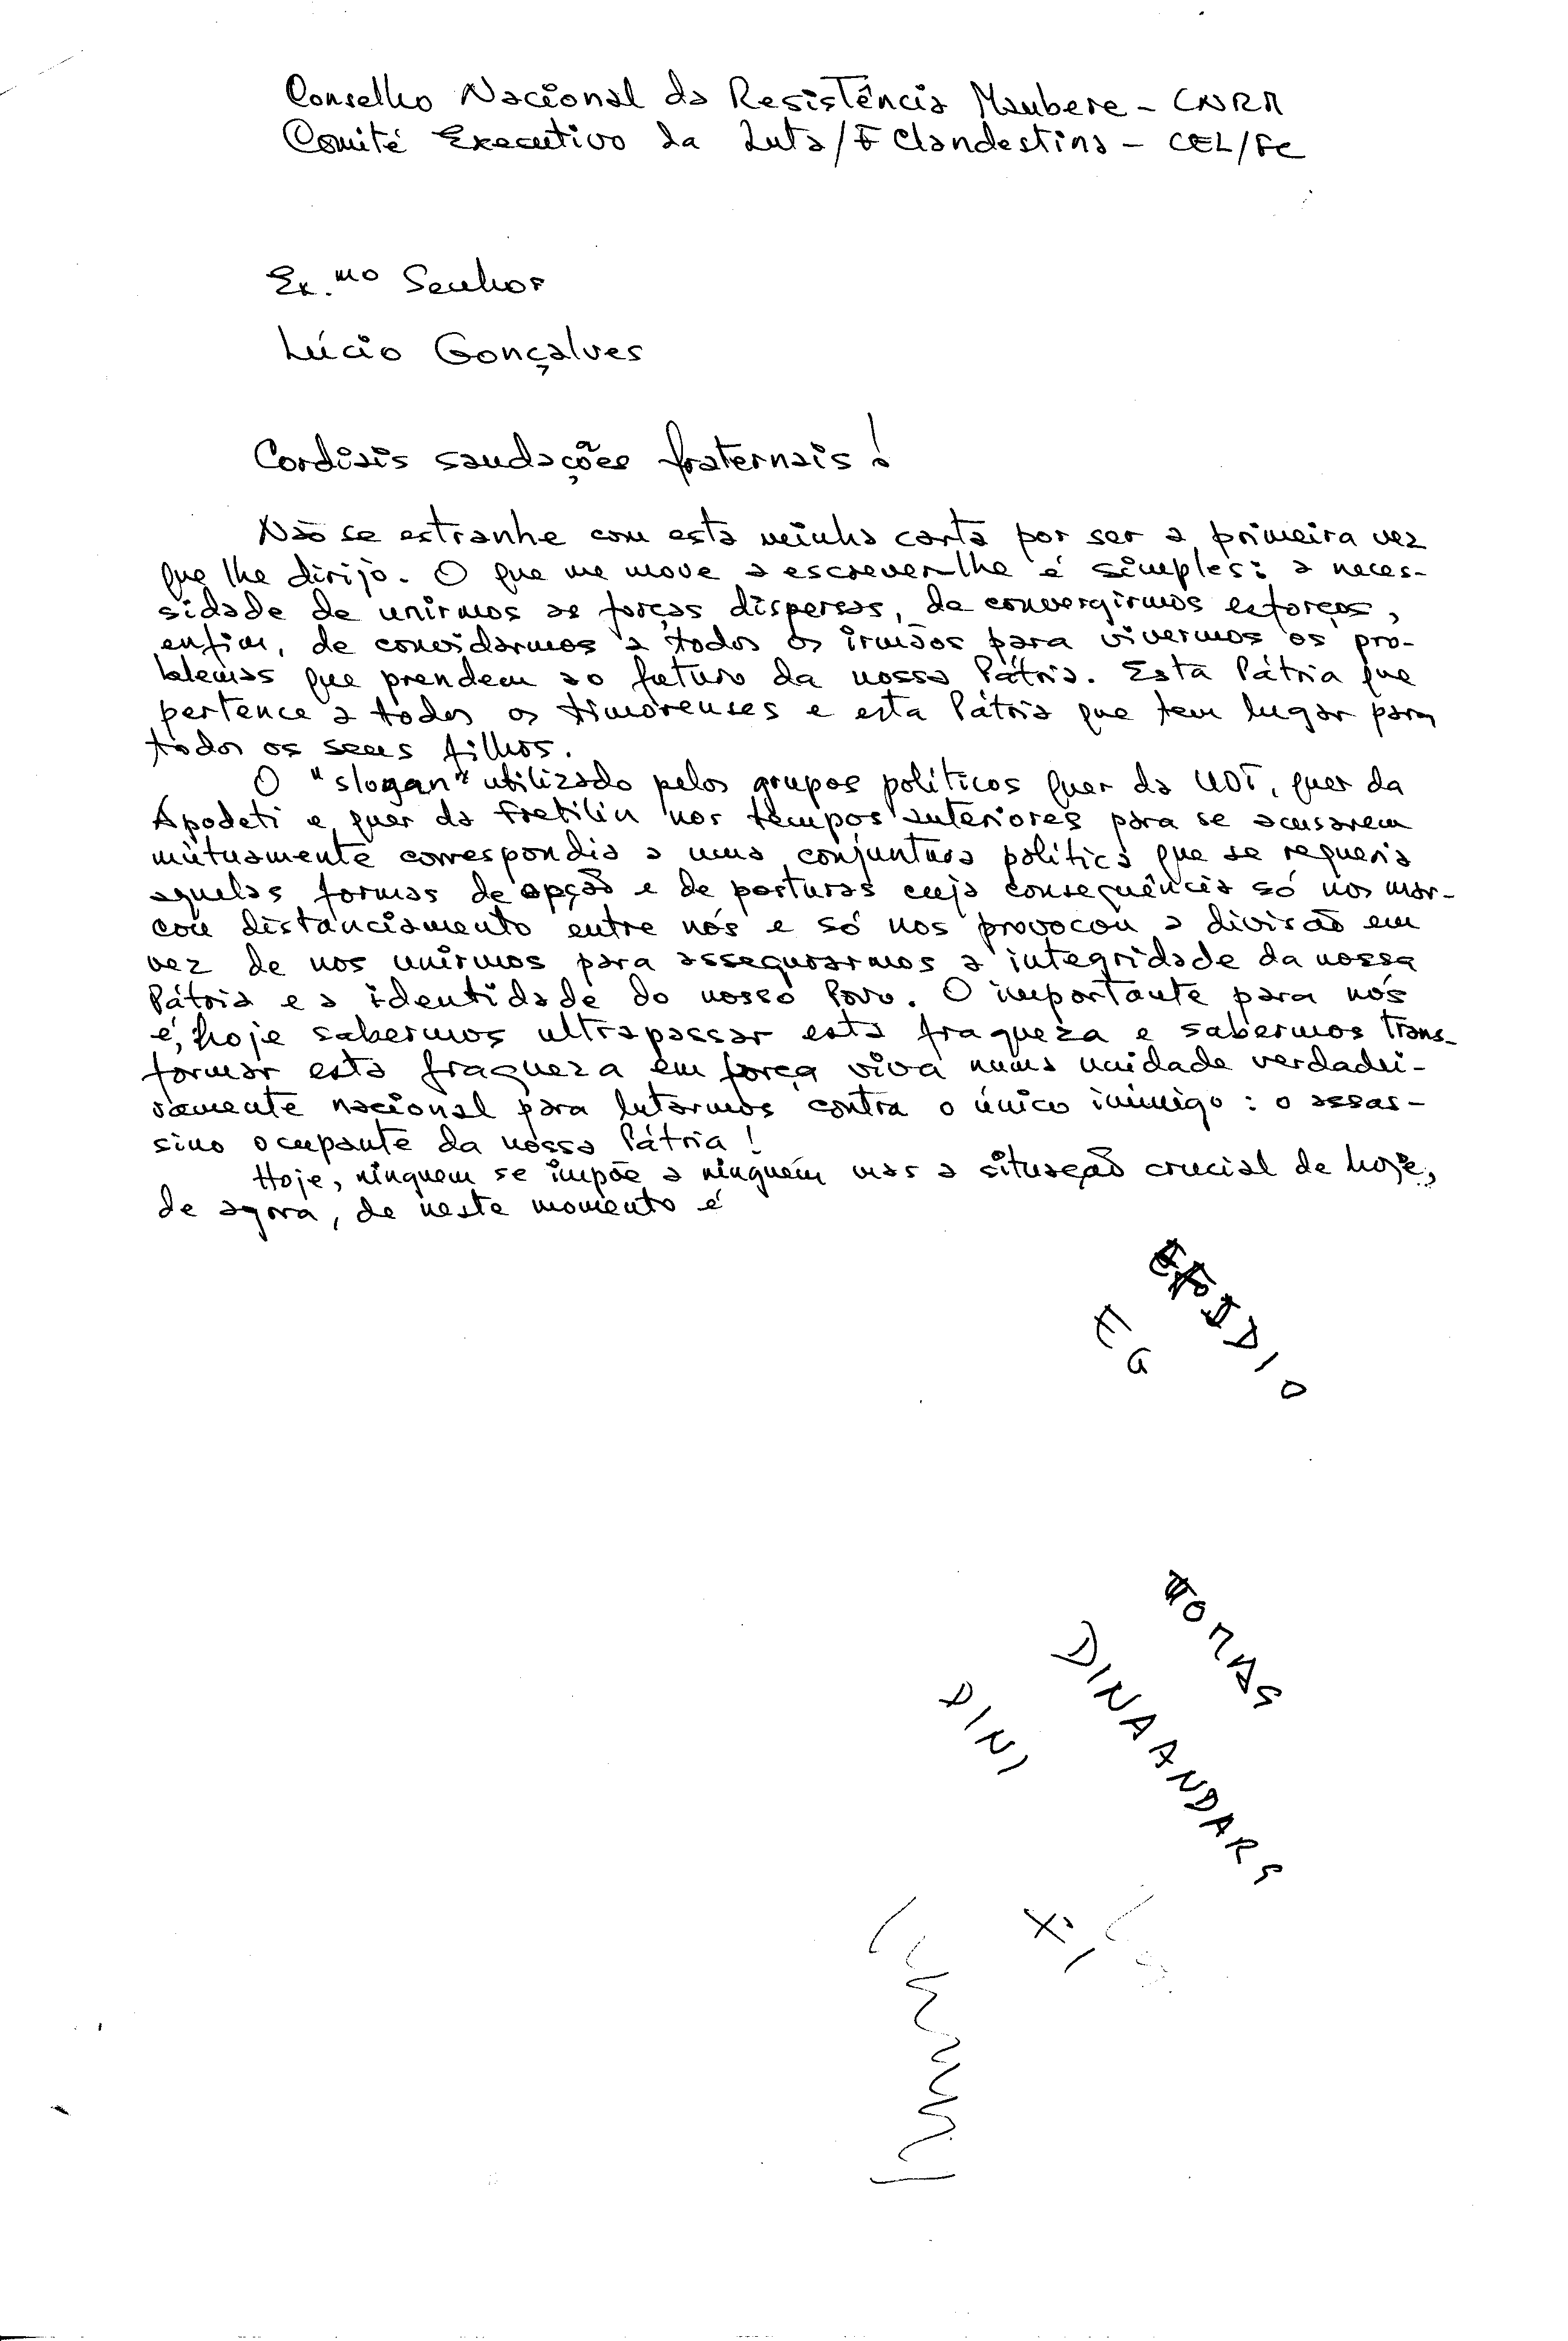 Conselho Nacional da Resistência Maubere - CNRM
Comité Executivo da Luta/F Clandestina - CEL/FC
Ex.mo Senhor
Lúcio Gonçalves
Cordiais saudações fraternais!
Não se estranhe com esta minha carta por ser a primeira vez
que lhe dirijo. O que me move a escrever-lhe é simples: a neces-
sidade de unirmos as forças dispersas, de convergirmos esforços,
enfim, de convidarmos a todos os irmãos para vivermos os pro-
blemas que prendem ao futuro da nossa Pátria. Esta Pátria que
pertence a todos os timorenses e esta Pátria que tem lugar para
todos os seus filhos.
O "slogan" utilizado pelos grupos políticos quer da UDT, quer da
Apodeti e, quer da Fretilin nos tempos anteriores para se acusarem
mùtuamente correspondia a uma conjuntura política que se requeria
aquelas formas de opção e de posturas cuja consequência só nos mar-
cou distanciamento entre nós e só nos provocou a divisão em
vez de nos unirmos para assegurarmos a integridade da nossa
Pátria e a identidade do nosso Povo. O importante para nós
é, hoje sabermos ultrapassar esta fraqueza e sabermos trans-
formar esta fraqueza em força viva numa unidade verdadei-
ramente nacional para lutarmos contra o único inimigo: o assas-
sino ocupante da nossa Pátria!
Hoje, ninguem se impõe a ninguém mas a situação crucial de hoje,
de agora, de neste momento é
EG
TOMAS
DINAANDARS
DINI